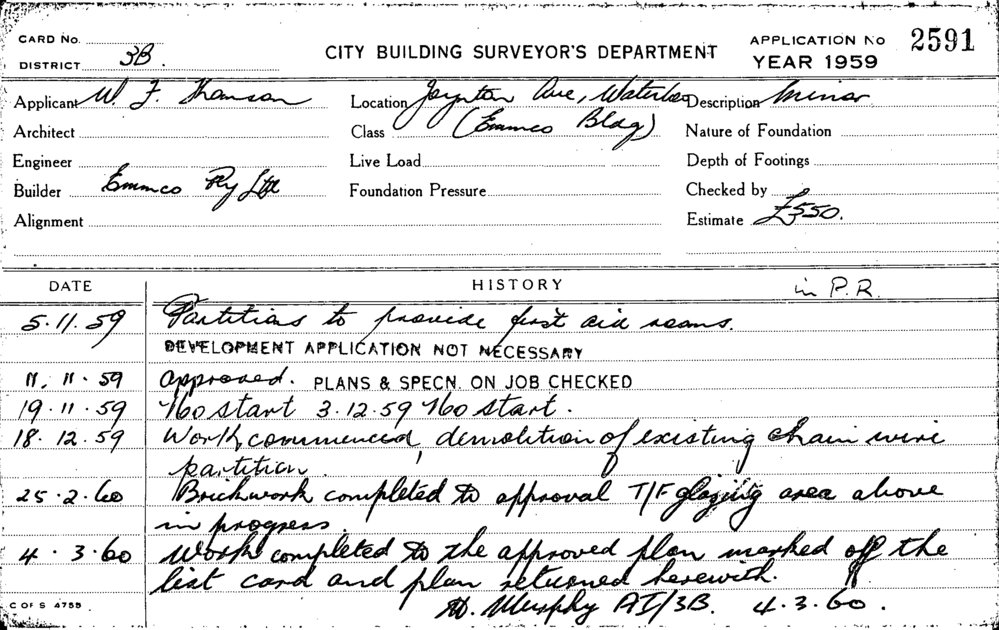 CARD No.
APPLICATION No 2591
DISTRICT 3B.
CITY BUILDING SURVEYOR'S DEPARTMENT
YEAR 1959
Applicant W. J. Thomson Location Joynton Ave, Waterloo Description Minor
Architect Class (Emmco Bldg) Nature of Foundation
Engineer Live Load Depth of Footings
Builder Emmco Pty Ltd Foundation Pressure Checked by
Alignment Estimate £550.
DATE HISTORY in P.R.
5.11.59 Partitions to provide first aid rooms.
DEVELOPMENT APPLICATION NOT NECESSARY
11.11.59 Approved. PLANS & SPECN. ON JOB CHECKED
19.11.59 No start 3.12.59 No start.
18.12.59 Work commenced, demolition of existing chain wire
partition.
25.2.60 Brickwork completed to approval T/F glazing area above
in progress.
4.3.60 Work completed to the approved plan marked off the
list card and plan returned herewith.
Murphy AI/3B. 4.3.60.
C OF S 4755